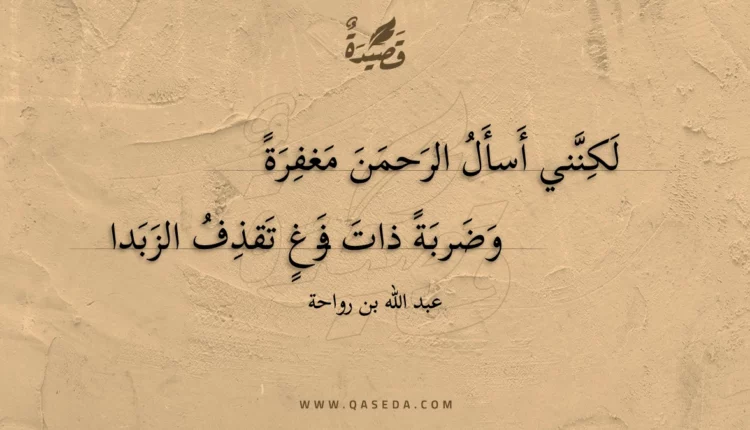 قَصِيدَةٌ
لَكِنَّني أَسأَلُ الرَحمَنَ مَغفِرَةً
وَضَربَةً ذاتَ فَرَغٍ تَقذِفُ الزَبَدا
عبد الله بن رواحة
WWW.QASEDA.COM